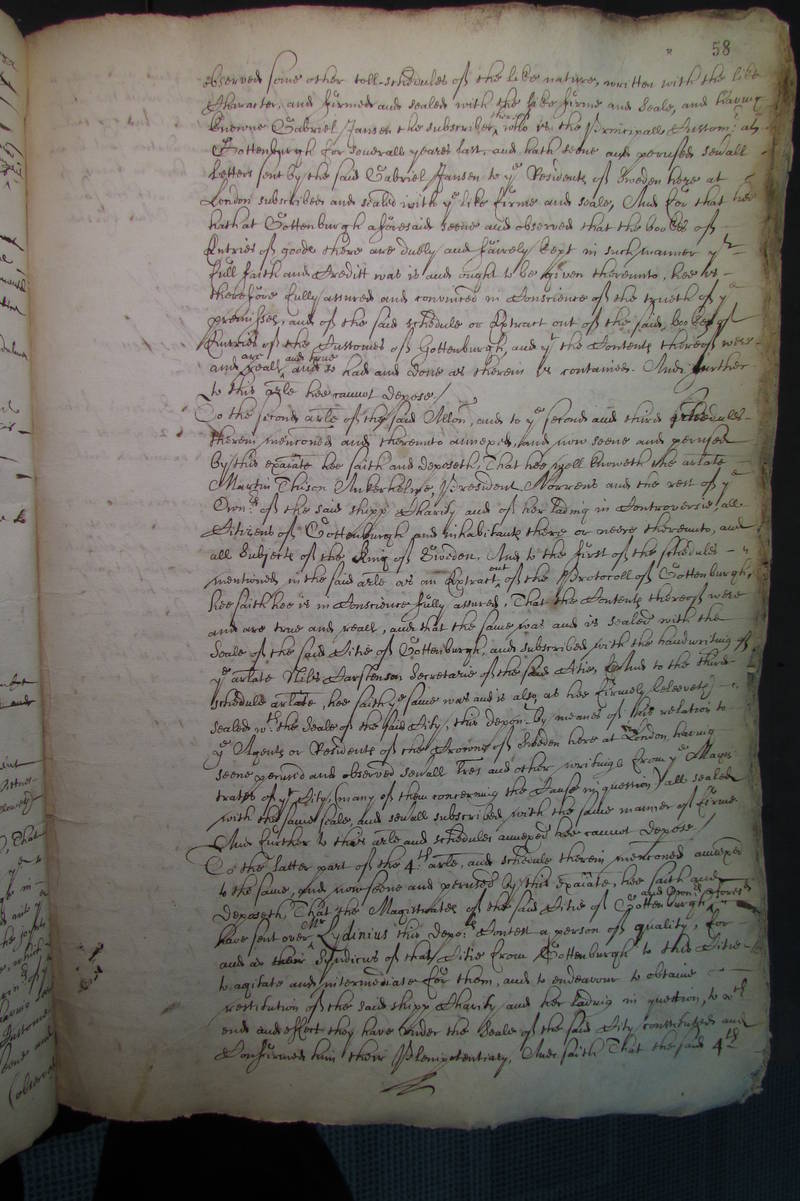 58
observed some other toll-schedules of the like nature, written with the like
Character, and firmed and sealed with the like firme and seale, and having
knowne Gabriel Jansen the subscriber thereof who is the Principall Custom:r at
Gottenburgh for severall yeares last, and hath seene and perused sevall
Letters sent by the said Gabriel Jansen to ye Residents of Sweden here at
London subscribed and sealed with ye like firme and seale, And for that hee
hath at Gottenburgh aforesaid seene and observed that the bookes of
Entries of goods there are duely and fairely kept in such manner yt
full faith and Creditt was is and ought to be given thereunto, hee is
therefore fully assured and convinced in Conscience of the trueth of ye
premisses, and of the said schedule or Extract out of the said bookes of
Entries of the Customes of Gottenburgh, and yt the Contents thereof were
and are reall and true and so had and done as therein is contained. And further
to this arle hee cannot depose /
To the second arle of the said Allon, and to ye second and third schedules
therein menconed and thereunto annexed, and now seene and perused
by this exaiate hee saith and deposeth, That hee well knoweth the arlate
Martin Thison Ankerhelme, President Norrens and the rest of ye
Own:rs of the said shipp Charity and of her lading in Controversie, all
Citizens of Gottenburgh and inhabitants there or neere thereunto, and
all Subjects of the King of Sweden. And to the first of the schedules
mentioned in the said arle as an Extract out of the Protocoll of Gottenburgh,
hee saith hee is in Conscience fully assured, That the Contents thereof were
and are true and reall, and that the same was and is sealed with the
Seale of the said Citie of Gottenburgh, and subscribed with the handwriting of
ye arlate Nils Carstenson Secretarie of the said Citie, And to the third
schedule arlate, hee saith ye same was and is also, as hee firmely beleeveth
sealed wth the Seale of the said City, this depont by meanes of his relation to
ye Agents or Residents of the Crowne of Sweden here at London, having
seene perused and observed sevall lres and other writings from ye Magis
trates of yt City, (many of them concerning the Cause in question) all sealed
with the same seale, and sevall subscribed with the same manner of firme
And further to this arle and schedules annexed hee cannot depose /
To the latter part of the 4th arle, and schedule therein menconed annexed
to the same, and now seene and perused by this exaiate, hee saith and
deposeth, That the Magistrates of the said Citie of Gottenburgh and Own:rs aforesd
have sent over Mr Lydinius this depo:ts Contest a person of quality, for
and as their Syndicus of that Citie from Gottenburgh to this Citie
to agitate and intermediate for them, and to endeavour to obtaine
restitution of the said shipp Charity and her lading in question, to wch
end and effect they have under the Seale of the said City constituted and
Confirmed him their Plenipotentiary, And saith That the said 4th